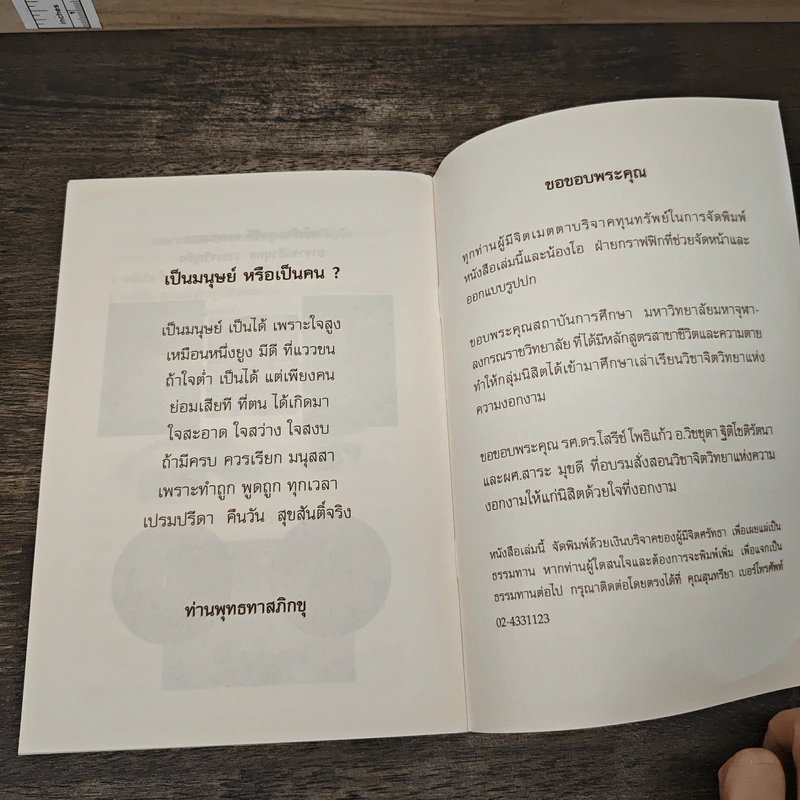 เป็นมนุษย์ หรือเป็นคน ?
เป็นมนุษย์ เป็นได้ เพราะใจสูง
เหมือนหนึ่งยูง มีดี ที่แววขน
ถ้าใจต่ำ เป็นได้ แต่เพียงคน
ย่อมเสียที ที่ตน ได้เกิดมา
ใจสะอาด ใจสว่าง ใจสงบ
ถ้ามีครบ ควรเรียก มนุสสา
เพราะทำถูก พูดถูก ทุกเวลา
เปรมปรีดา คืนวัน สุขสันติ์จริง
ท่านพุทธทาสภิกขุ
ขอขอบพระคุณ
ทุกท่านผู้มีจิตเมตตาบริจาคทุนทรัพย์ในการจัดพิมพ์
หนังสือเล่มนี้และน้องโอ ฝ่ายกราฟฟิกที่ช่วยจัดหน้าและ
ออกแบบรูปปก
ขอบพระคุณสถาบันการศึกษา มหาวิทยาลัยมหาจุฬา-
ลงกรณราชวิทยาลัย ที่ได้มีหลักสูตรสาขาชีวิตและความตาย
ทำให้กลุ่มนิสิตได้เข้ามาศึกษาเล่าเรียนวิชาจิตวิทยาแห่ง
ความงอกงาม
ขอขอบพระคุณ รศ.ดร.โสรีช์ โพธิแก้ว อ.วิชชุดา ฐิติโชติรัตนา
และผศ.สาระ มุขดี ที่อบรมสั่งสอนวิชาจิตวิทยาแห่งความ
งอกงามให้แก่นิสิตด้วยใจที่งอกงาม
หนังสือเล่มนี้ จัดพิมพ์ด้วยเงินบริจาคของผู้มีจิตศรัทธา เพื่อเผยแผ่เป็น
ธรรมทาน หากท่านผู้ใดสนใจและต้องการจะพิมพ์เพิ่ม เพื่อแจกเป็น
ธรรมทานต่อไป กรุณาติดต่อโดยตรงได้ที่ คุณสุนทรียา เบอร์โทรศัพท์
02-4331123
inches 1